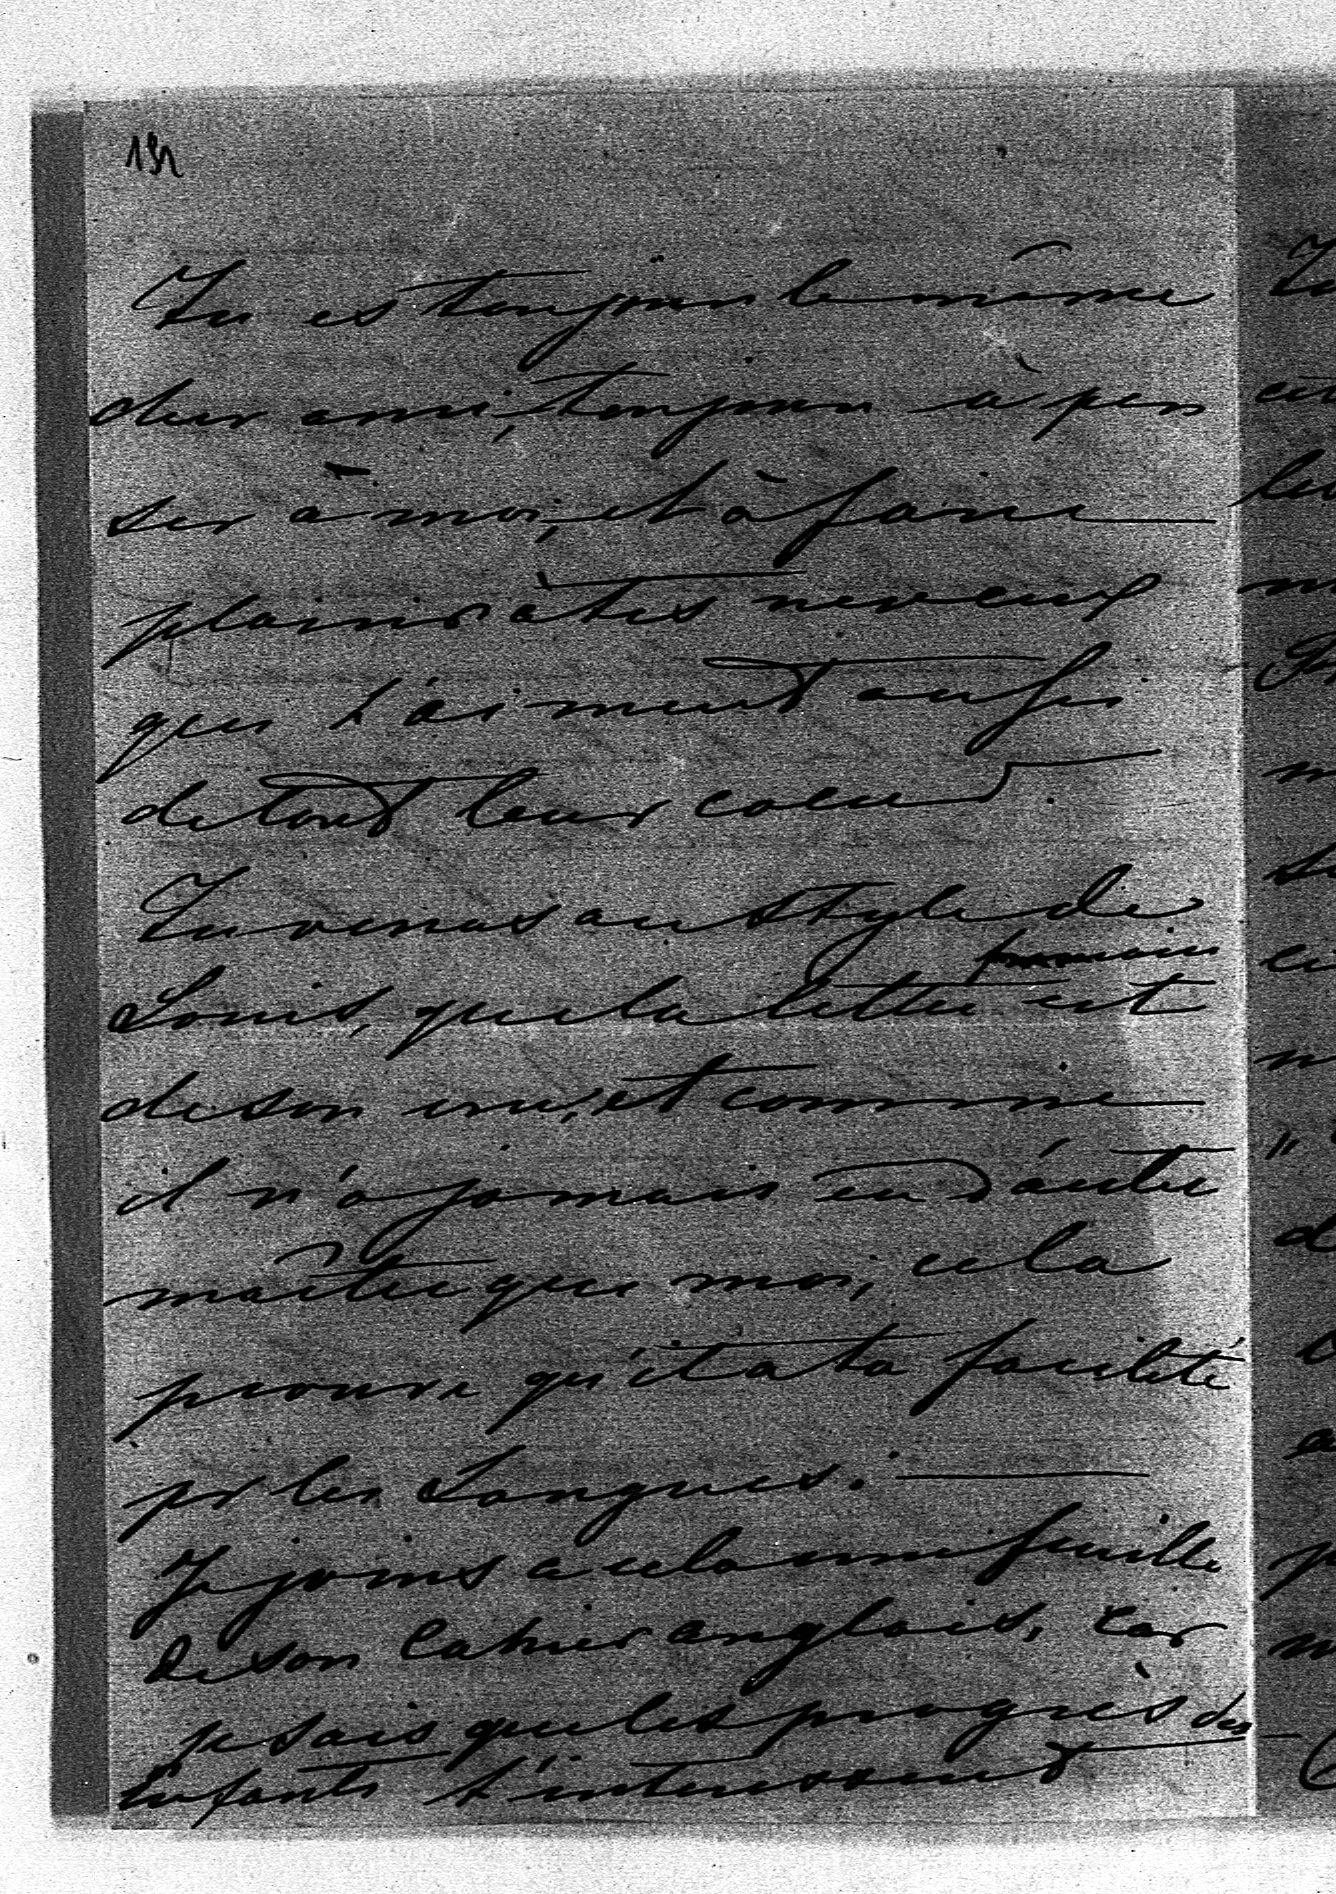 132
Tu es toujours le même
cher ami, toujours à pen
ser à moi, et à faire
plaisir à tes neveux
qui t'aiment aussi
de tout leur coeur.
Tu verras au style de
Louis, que la lettre est
de son cru, et comme
il n'a jamais eu d'autre
maître que moi, cela
prouve qu'il a ta facilité
pr les Langues. —
Je joins a cela une feuille
de son Cahier anglais, Car
je sais que les progrès des
Enfants t'interessent